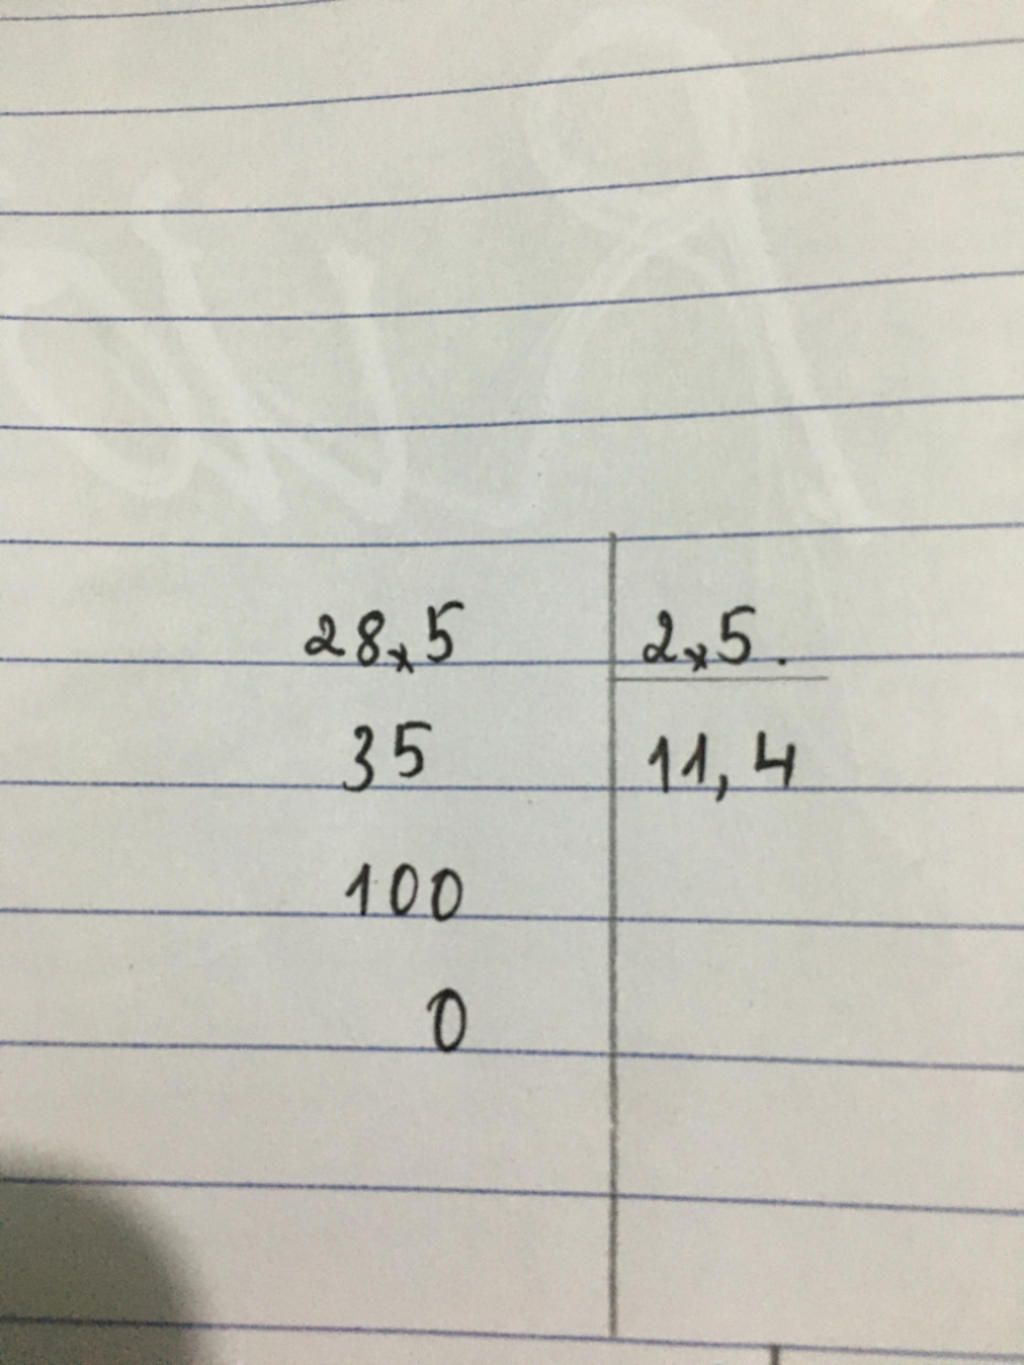 28,5 2,5.
35 11,4
100
0